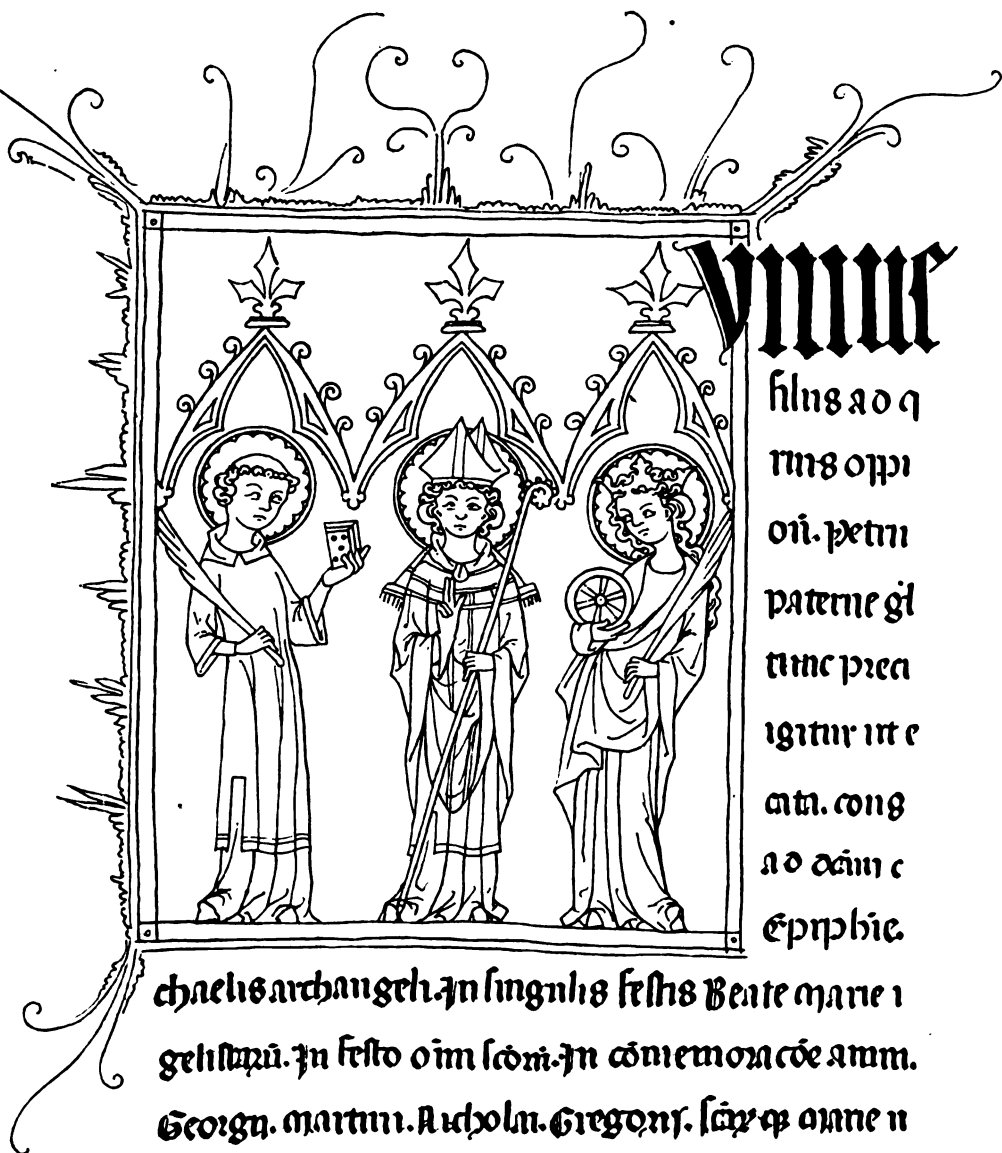 Uniue
filiis ad q
rings oppi
oru. Petru
paterne gl
tunc preci
igitur in e
cati. cong
ad dcim c
Epiphie.
chaelis archangeli. In singulis festis Beate marie i
gelistaru. In festo oim scoru. In comemoracoe anim.
Georgii. martini. Nicholai. Gregorii. marie